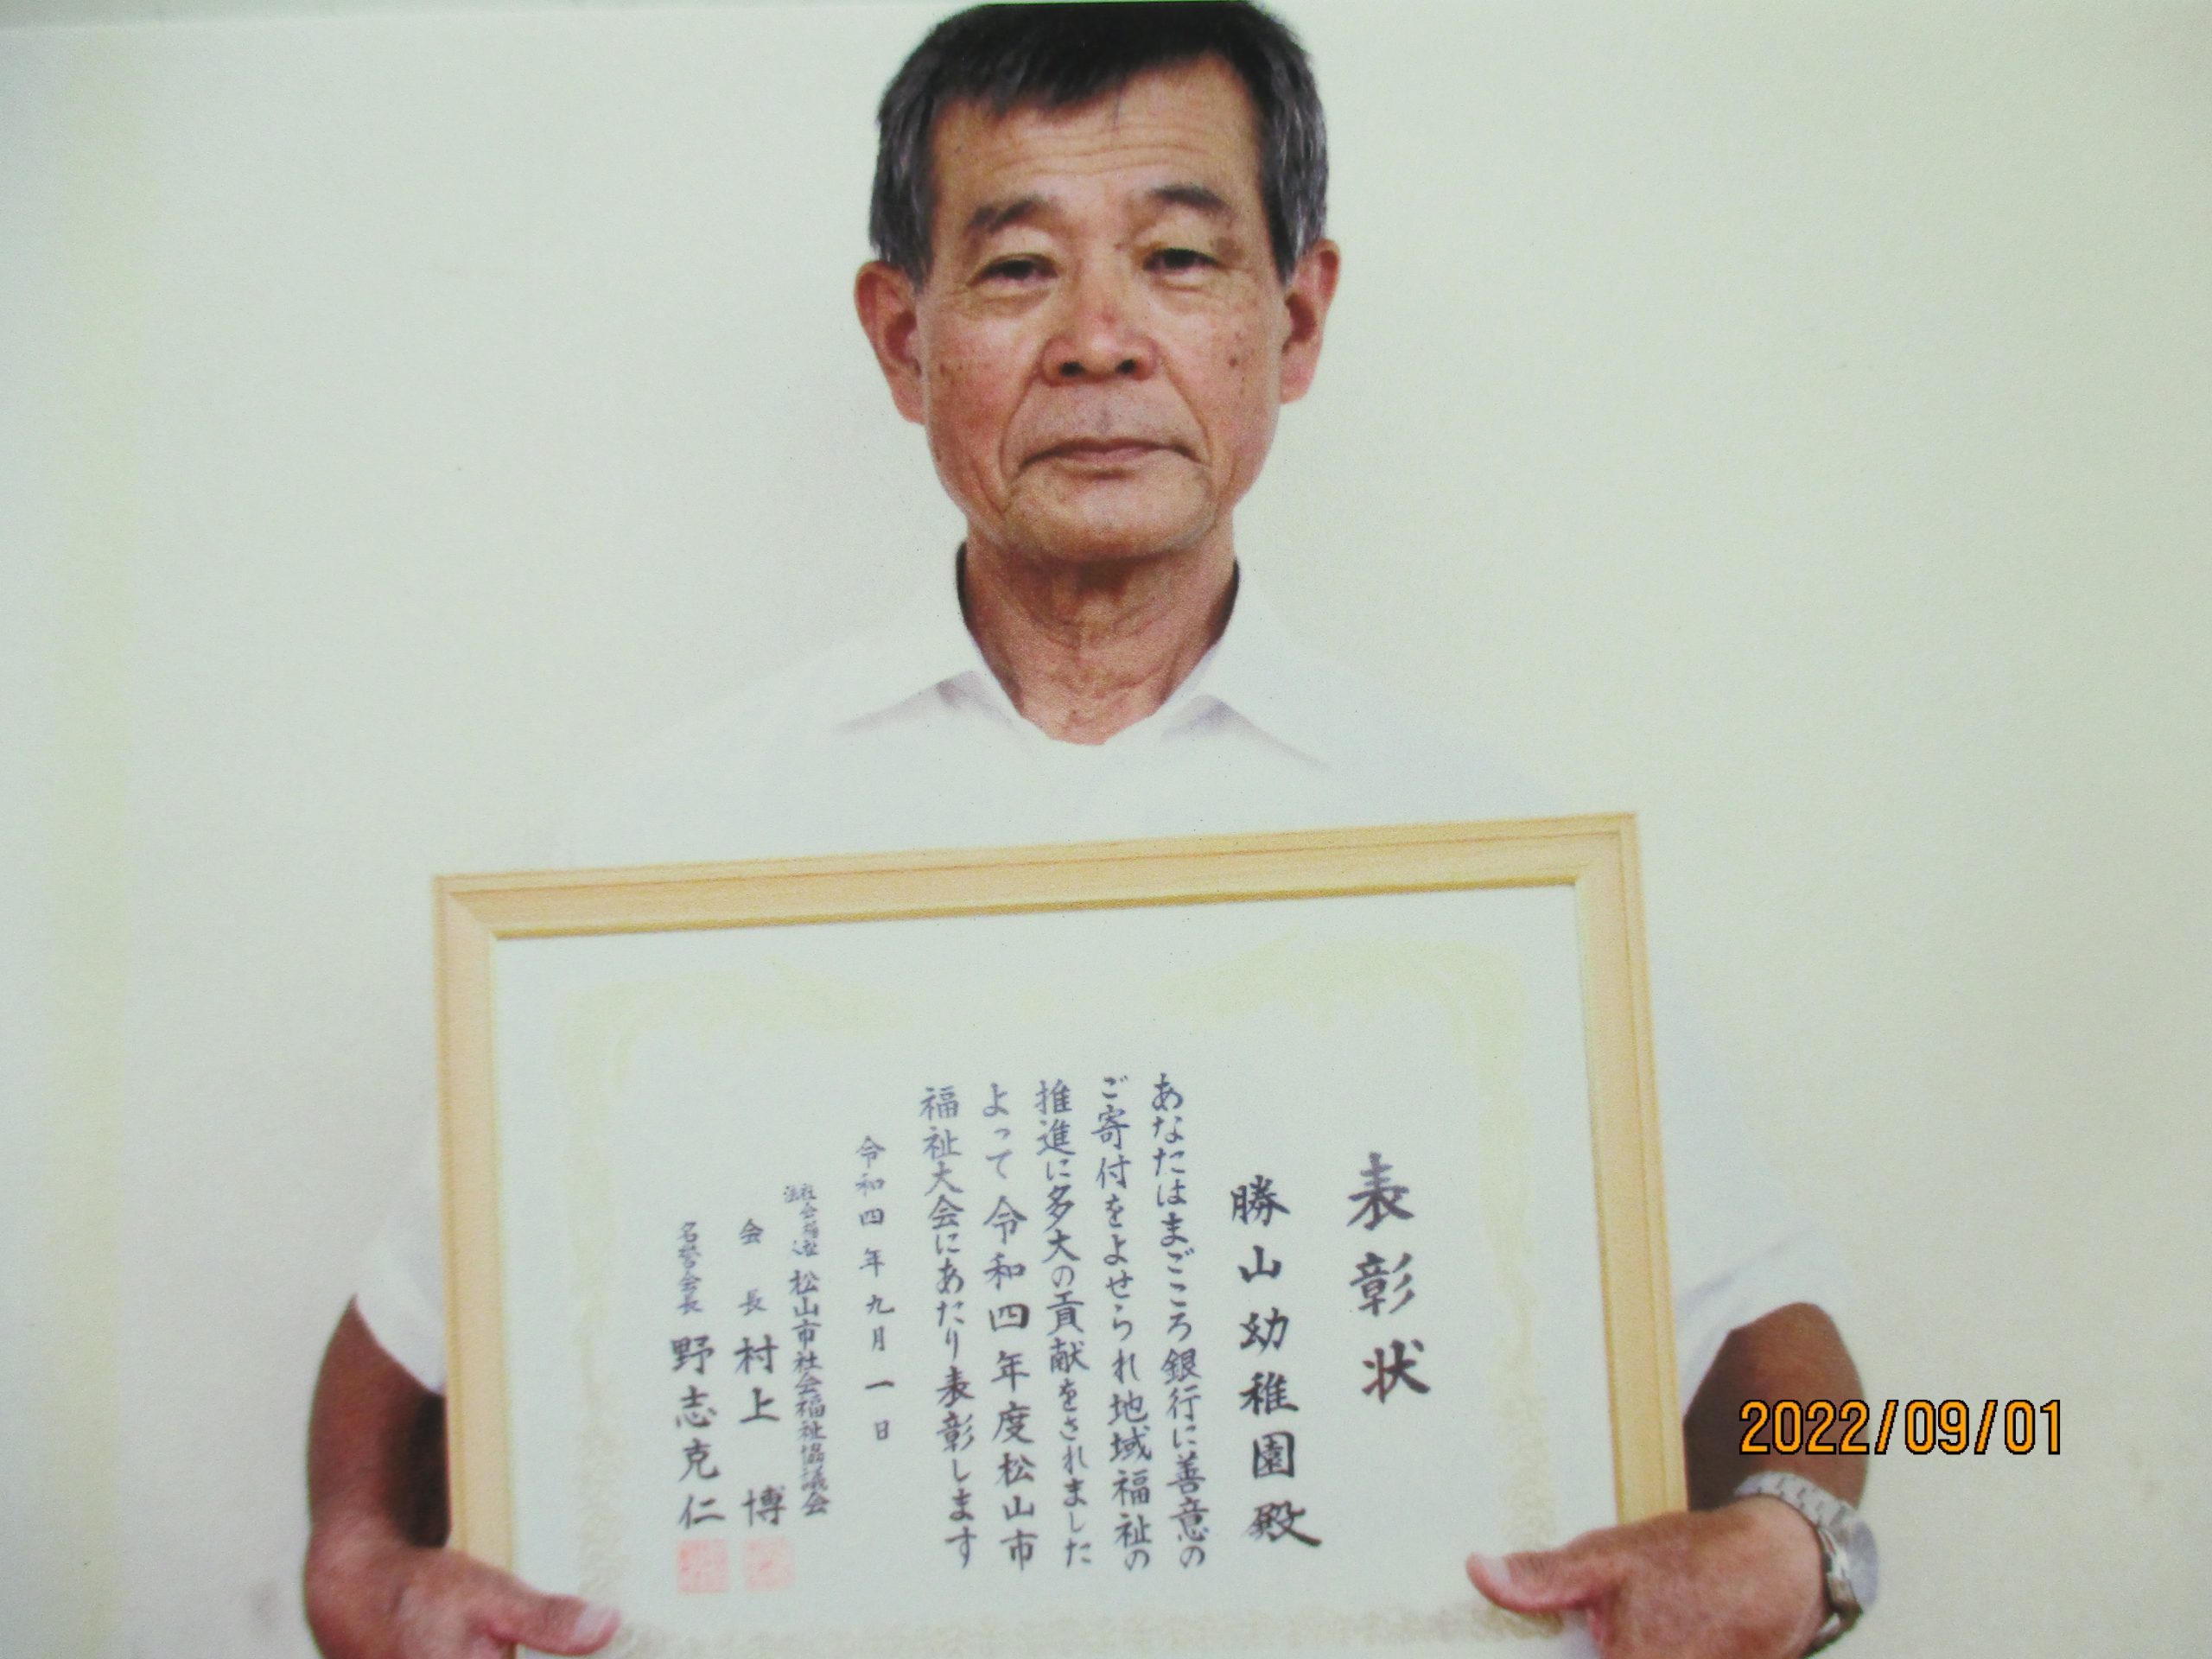 表彰状
勝山幼稚園殿
あなたはまごころ銀行に善意の
ご寄付をよせられ地域福祉の
推進に多大の貢献をされました
よって令和四年度松山市
福祉大会にあたり表彰します
令和四年九月一日
社会福祉法人 松山市社会福祉協議会
会長 村上 博
名誉会長 野志克仁
2022/09/01